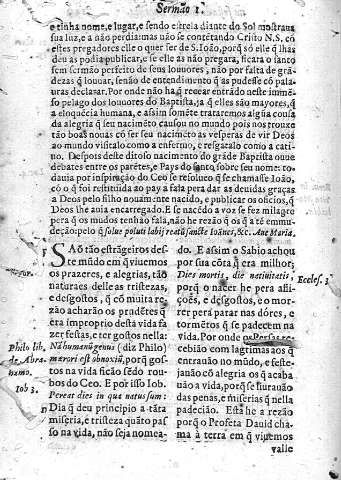 Sermão 1.
e tinha nome, e lugar, e sendo estrela diante do Sol mostraua
sua luz, e a não perdia: mas não se contẽtando Cristo N.S. cõ
estes pregadores elle o quer ser de S. Ioão, porq̃ só elle q̃ lhas
deu as podia publicar, e se elle as não pregara, ficara o santo
sem sermão perfeito de seus louuores, não por falta de grã-
dezas q̃ louuar, senão de entendimento q̃ as pudesse cõ pala-
uras declarar. Por onde não ha q̃ recear entrado neste immẽ-
so pelago dos louuores do Baptista, ja q̃ elles são mayores, q̃
a eloquẽcia humana, e assim sómẽte trataremos algũa cousa
da alegria q̃ seu nacimẽto causou no mundo pois nos trouxe
tão boas nouas cõ ser seu nacimẽto as vesperas de vir Deos
ao mundo visitalo como a enfermo, e resgatalo como a cati-
uo. Despois deste ditoso nacimento do grãde Baptista ouue
debates entre os parẽtes, e Pays do santo, sobre seu nome: to-
dauia por inspiração do Ceo se resolueo q̃ se chamasse Ioão,
cõ o q̃ foi restituida ao pay a fala pera dar as deuidas graças
a Deos pelo filho nouamẽte nacido, e publicar os oficios, q̃
Deos lhe auia encarregado. E se nacẽdo a voz se fez milagre
pera q̃ os mudos falassem, bem he, não he rezão q̃ os q̃ tẽ emmu-
deção: pelo q̃ solue poluti labij reatũ sancte Ioánes, &c. Aue Maria,
SAõ tão estrãgeiros des-
te mũdo em q̃ viuemos
os prazeres, e alegrias, tão
naturaes delle as tristezas,
e desgostos, q̃ cõ muita re-
zão acharão os prudẽtes q̃
era improprio desta vida fa
zer festas, e ter contentos:
Nã humanũ genus (diz Philo)
mærori est obnoxiũ, porq̃ gos-
tos na vida ficão sẽdo rou-
bos do Ceo. E por isso Iob.
Pereat dies in qua natus sum:
Dia q̃ deu principio a tãta
miseria, e tristeza quãto pas
so na vida, não seja nomea-
Philo lib.
de Abra-
hamo.
Iob 3.
do. E assim o Sabio achou
por sua cõta q̃ era milhor;
Dies mortis, die natiuitatis,
porq̃ o nacer he pera afli-
ções, e desgostos, e o mor-
rer perá parar nas dóres, e
tormẽtos q̃ se padecem na
vida. Por onde os Persas re-
cebião com lagrimas aos q̃
entrauão no mũdo, e feste-
jauão cõ alegria os q̃ acaba
uão a vida, porq̃ se liurauão
das penas, e miserias q̃ nella
padecião. Està he a rezão
porq̃ o Profeta Dauid cha-
ma à terra em q̃ viuemos
valle
Eccles. 3